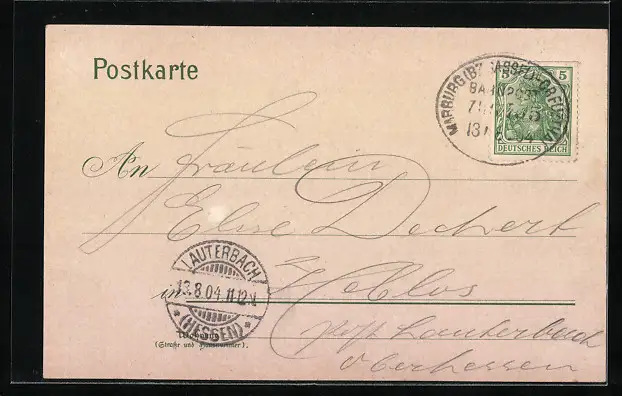 Postkarte
MARBURG (BZ. CASSEL)-
BAHNPOST
ZUG
13
5 5
DEUTSCHES REICH
An Fräulein
Elise Dechert
LAUTERBACH
13.8.04.11-12V.
* (HESSEN) *
in Heblos
Wohnung
(Straße und Hausnummer).
post Lauterbach
Oberhessen